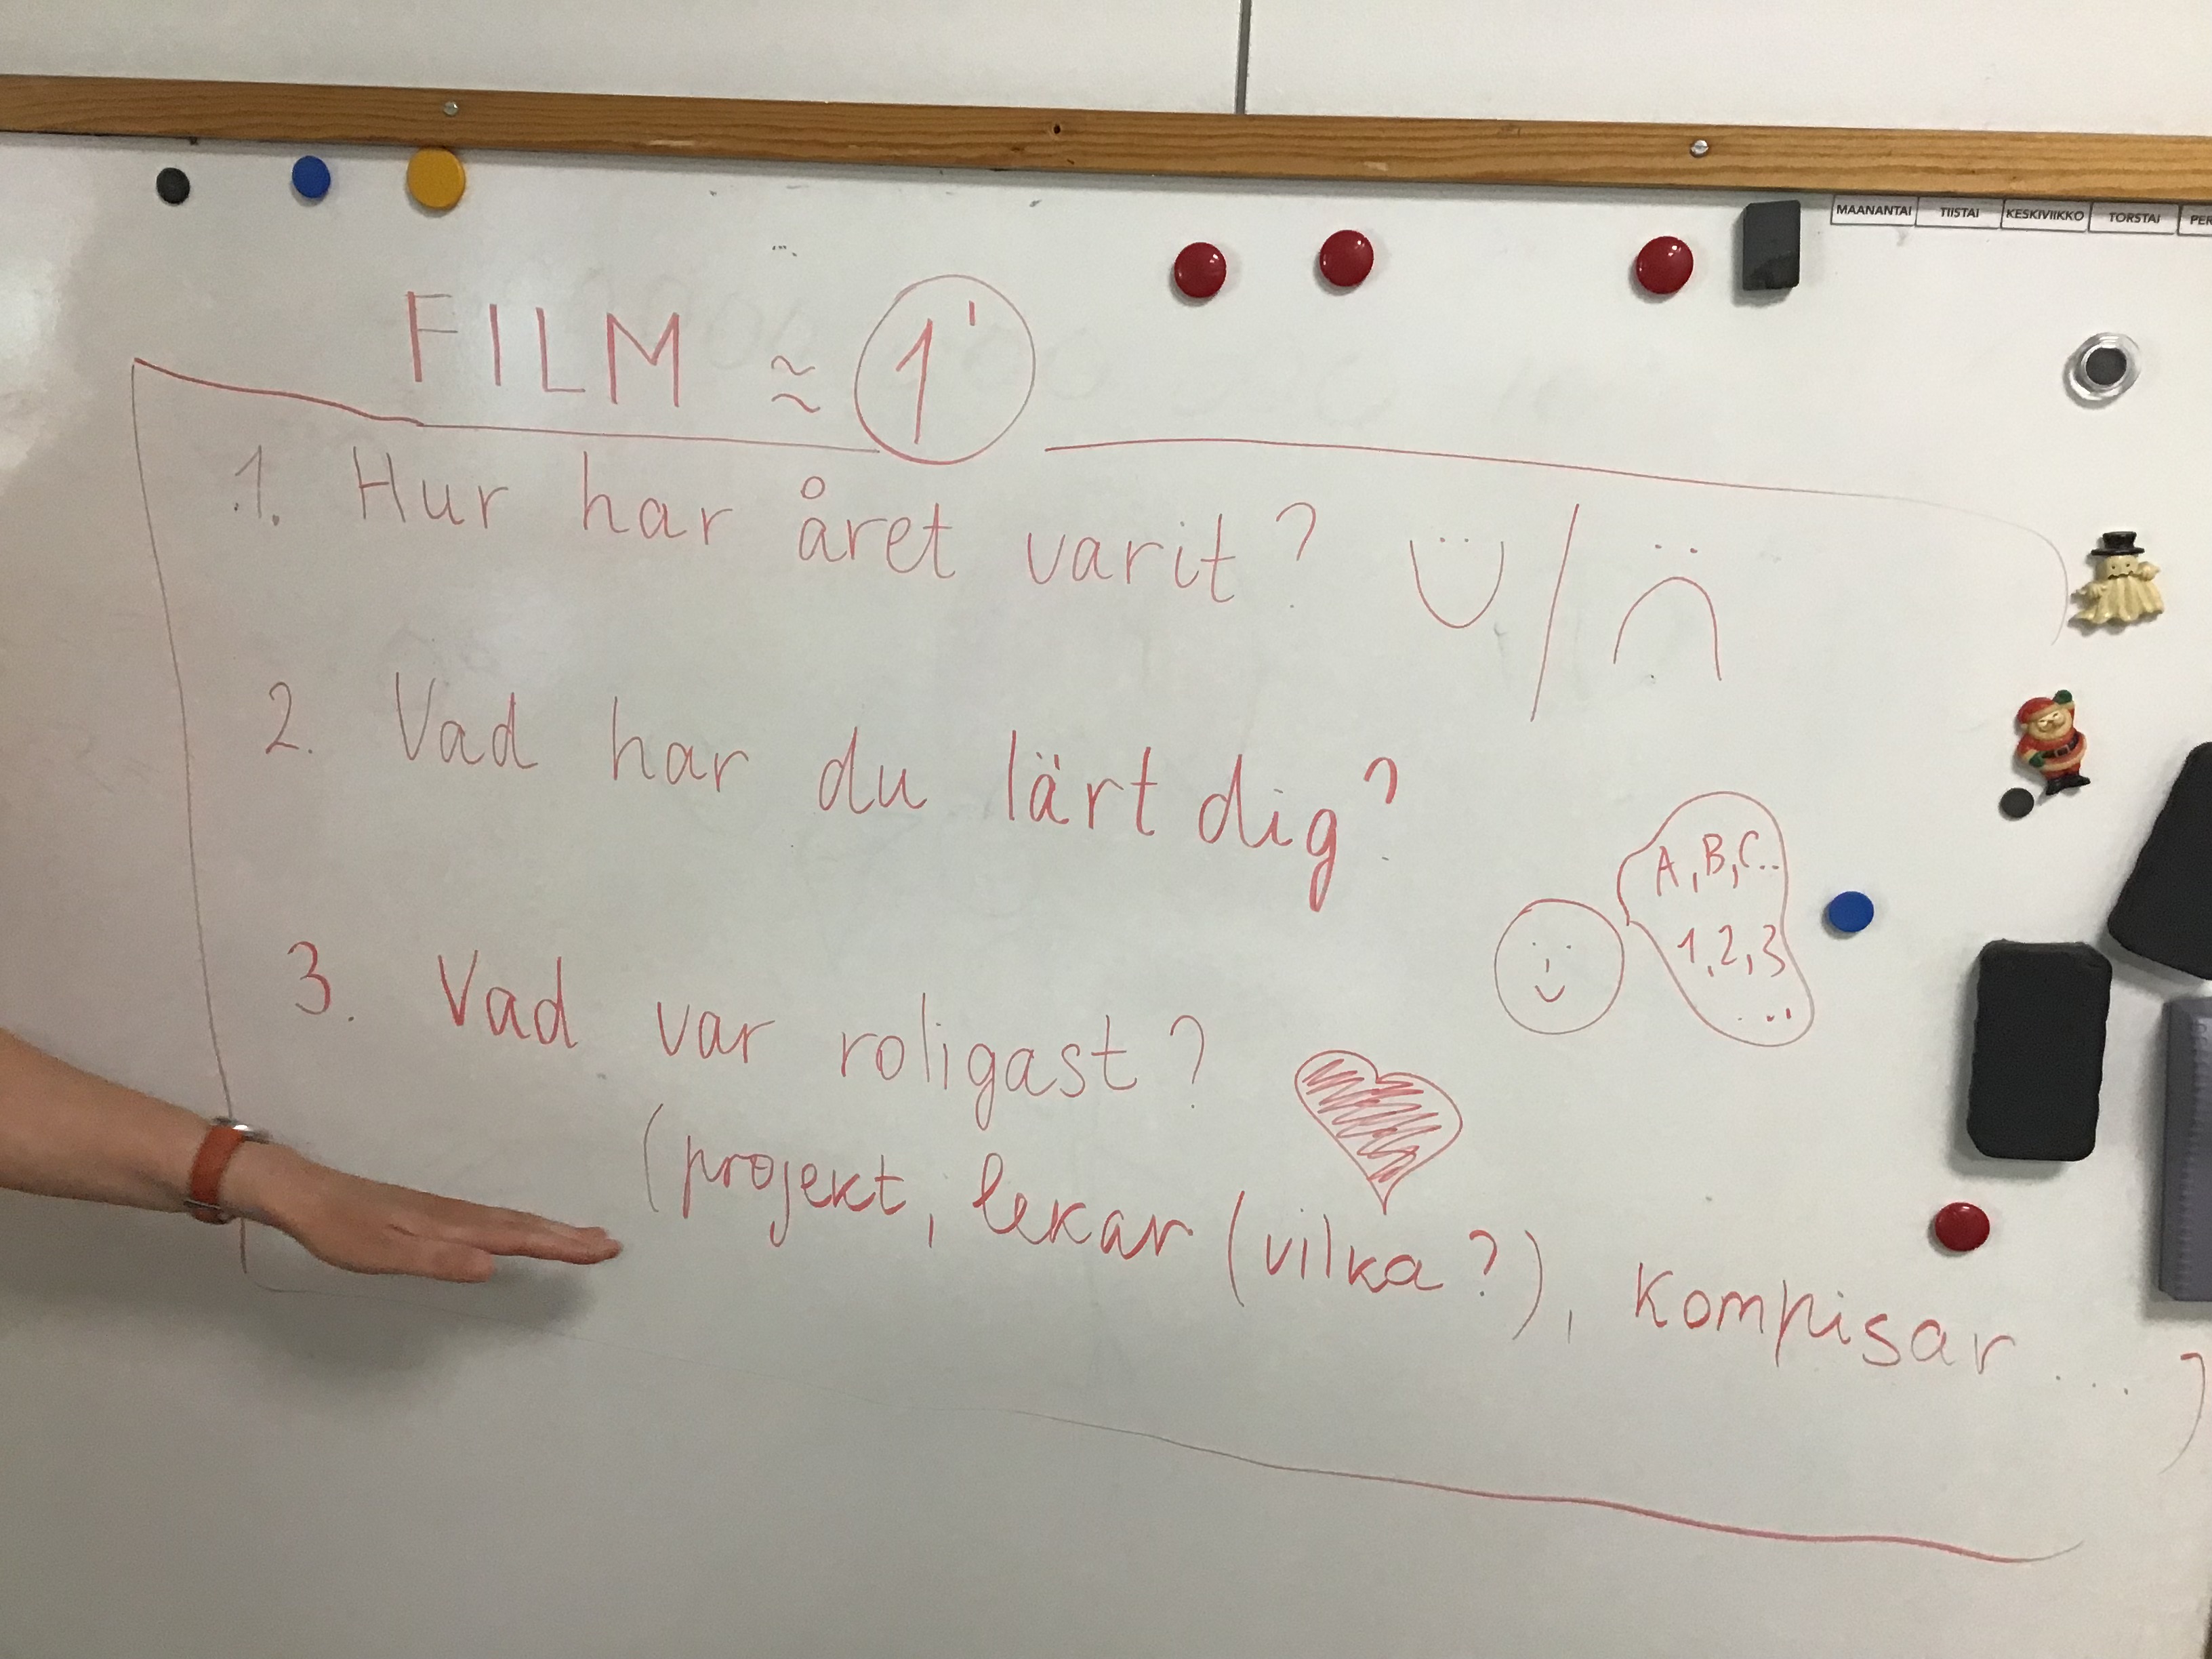 MAANANTAI TIISTAI KESKIVIIKKO TORSTAI PER
FILM ≈ 1'
1. Hur har året varit?
2. Vad har du lärt dig?
A, B, C..
1, 2, 3
...
3. Vad var roligast?
(projekt, lekar (vilka?), kompisar ... )